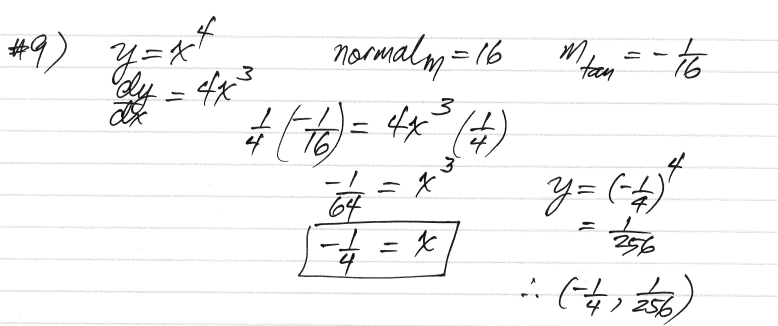 #9) y = x⁴ normal_m = 16 m_tan = -1/16
dy/dx = 4x³
1/4 (-1/16) = 4x³ (1/4)
-1/64 = x³ y = (-1/4)⁴
-1/4 = x = 1/256
∴ (-1/4, 1/256)